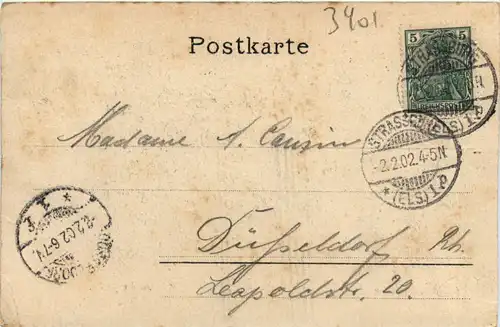 3401.
Postkarte
5 5
STRASSBURG
STRASSBURG (ELS) 1 P
-2.2.02.4-5N
* (ELS) 1 P
Madame A. Causin
Düsseldorf Rh.
Leopoldstr. 20.
2.2.02.6-7N
* 1 f